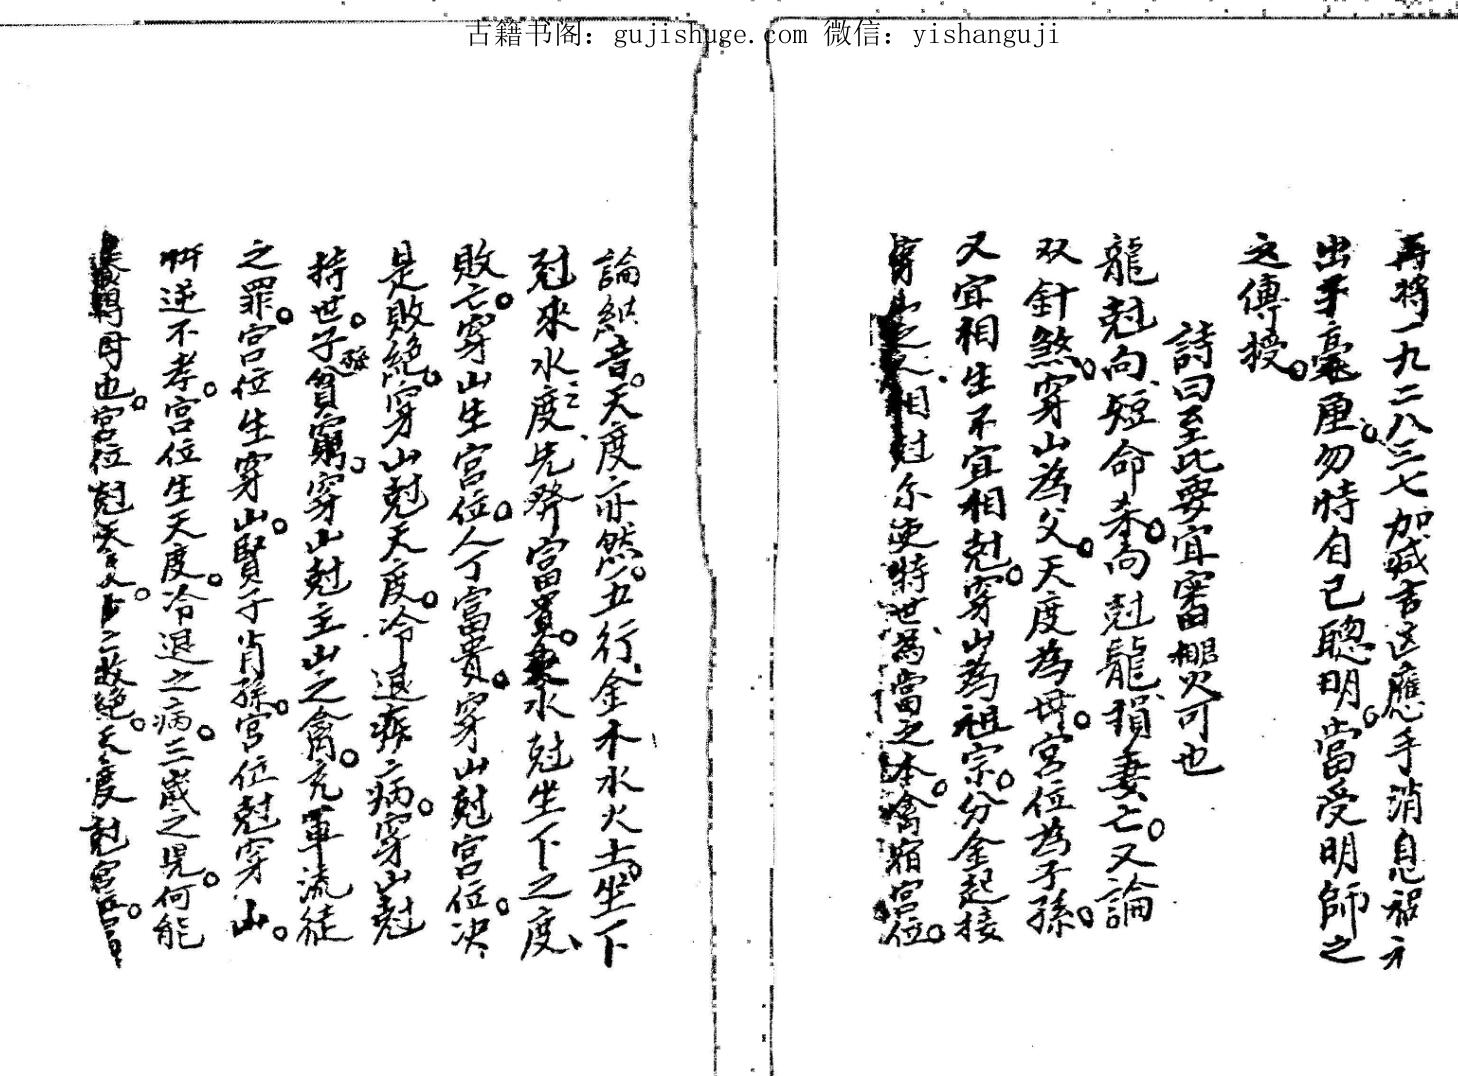 古籍书阁：gujishuge.com 微信：yishanguji
再將一九二八三七加減吉凶應手消息禍福
出乎毫厘勿恃自己聰明當受明師之
之傳授
詩曰至此要宜審火可也
龍尅向短命杀向尅龍損妻亡又論
双針煞穿山為父天度為母宮位為子孫
又宜相生不宜相尅穿山為祖宗分金起接
相尅尔更特世為當之本禽宿宮位
論納音天度亦然五行金木水火土坐下
尅來水度先發富貴來水尅坐下之度
敗亡穿山生宮位人丁富貴穿山尅宮位决
是敗絕穿山尅天度冷退病穿山尅
持世子孫貧窮穿山尅主山之禽充軍流徒
之罪宮位生穿山賢子肖孫宮位尅穿山
忤逆不孝宮位生天度冷退之病三歲之児何能
母也宮位尅天敗絕天度尅宮位